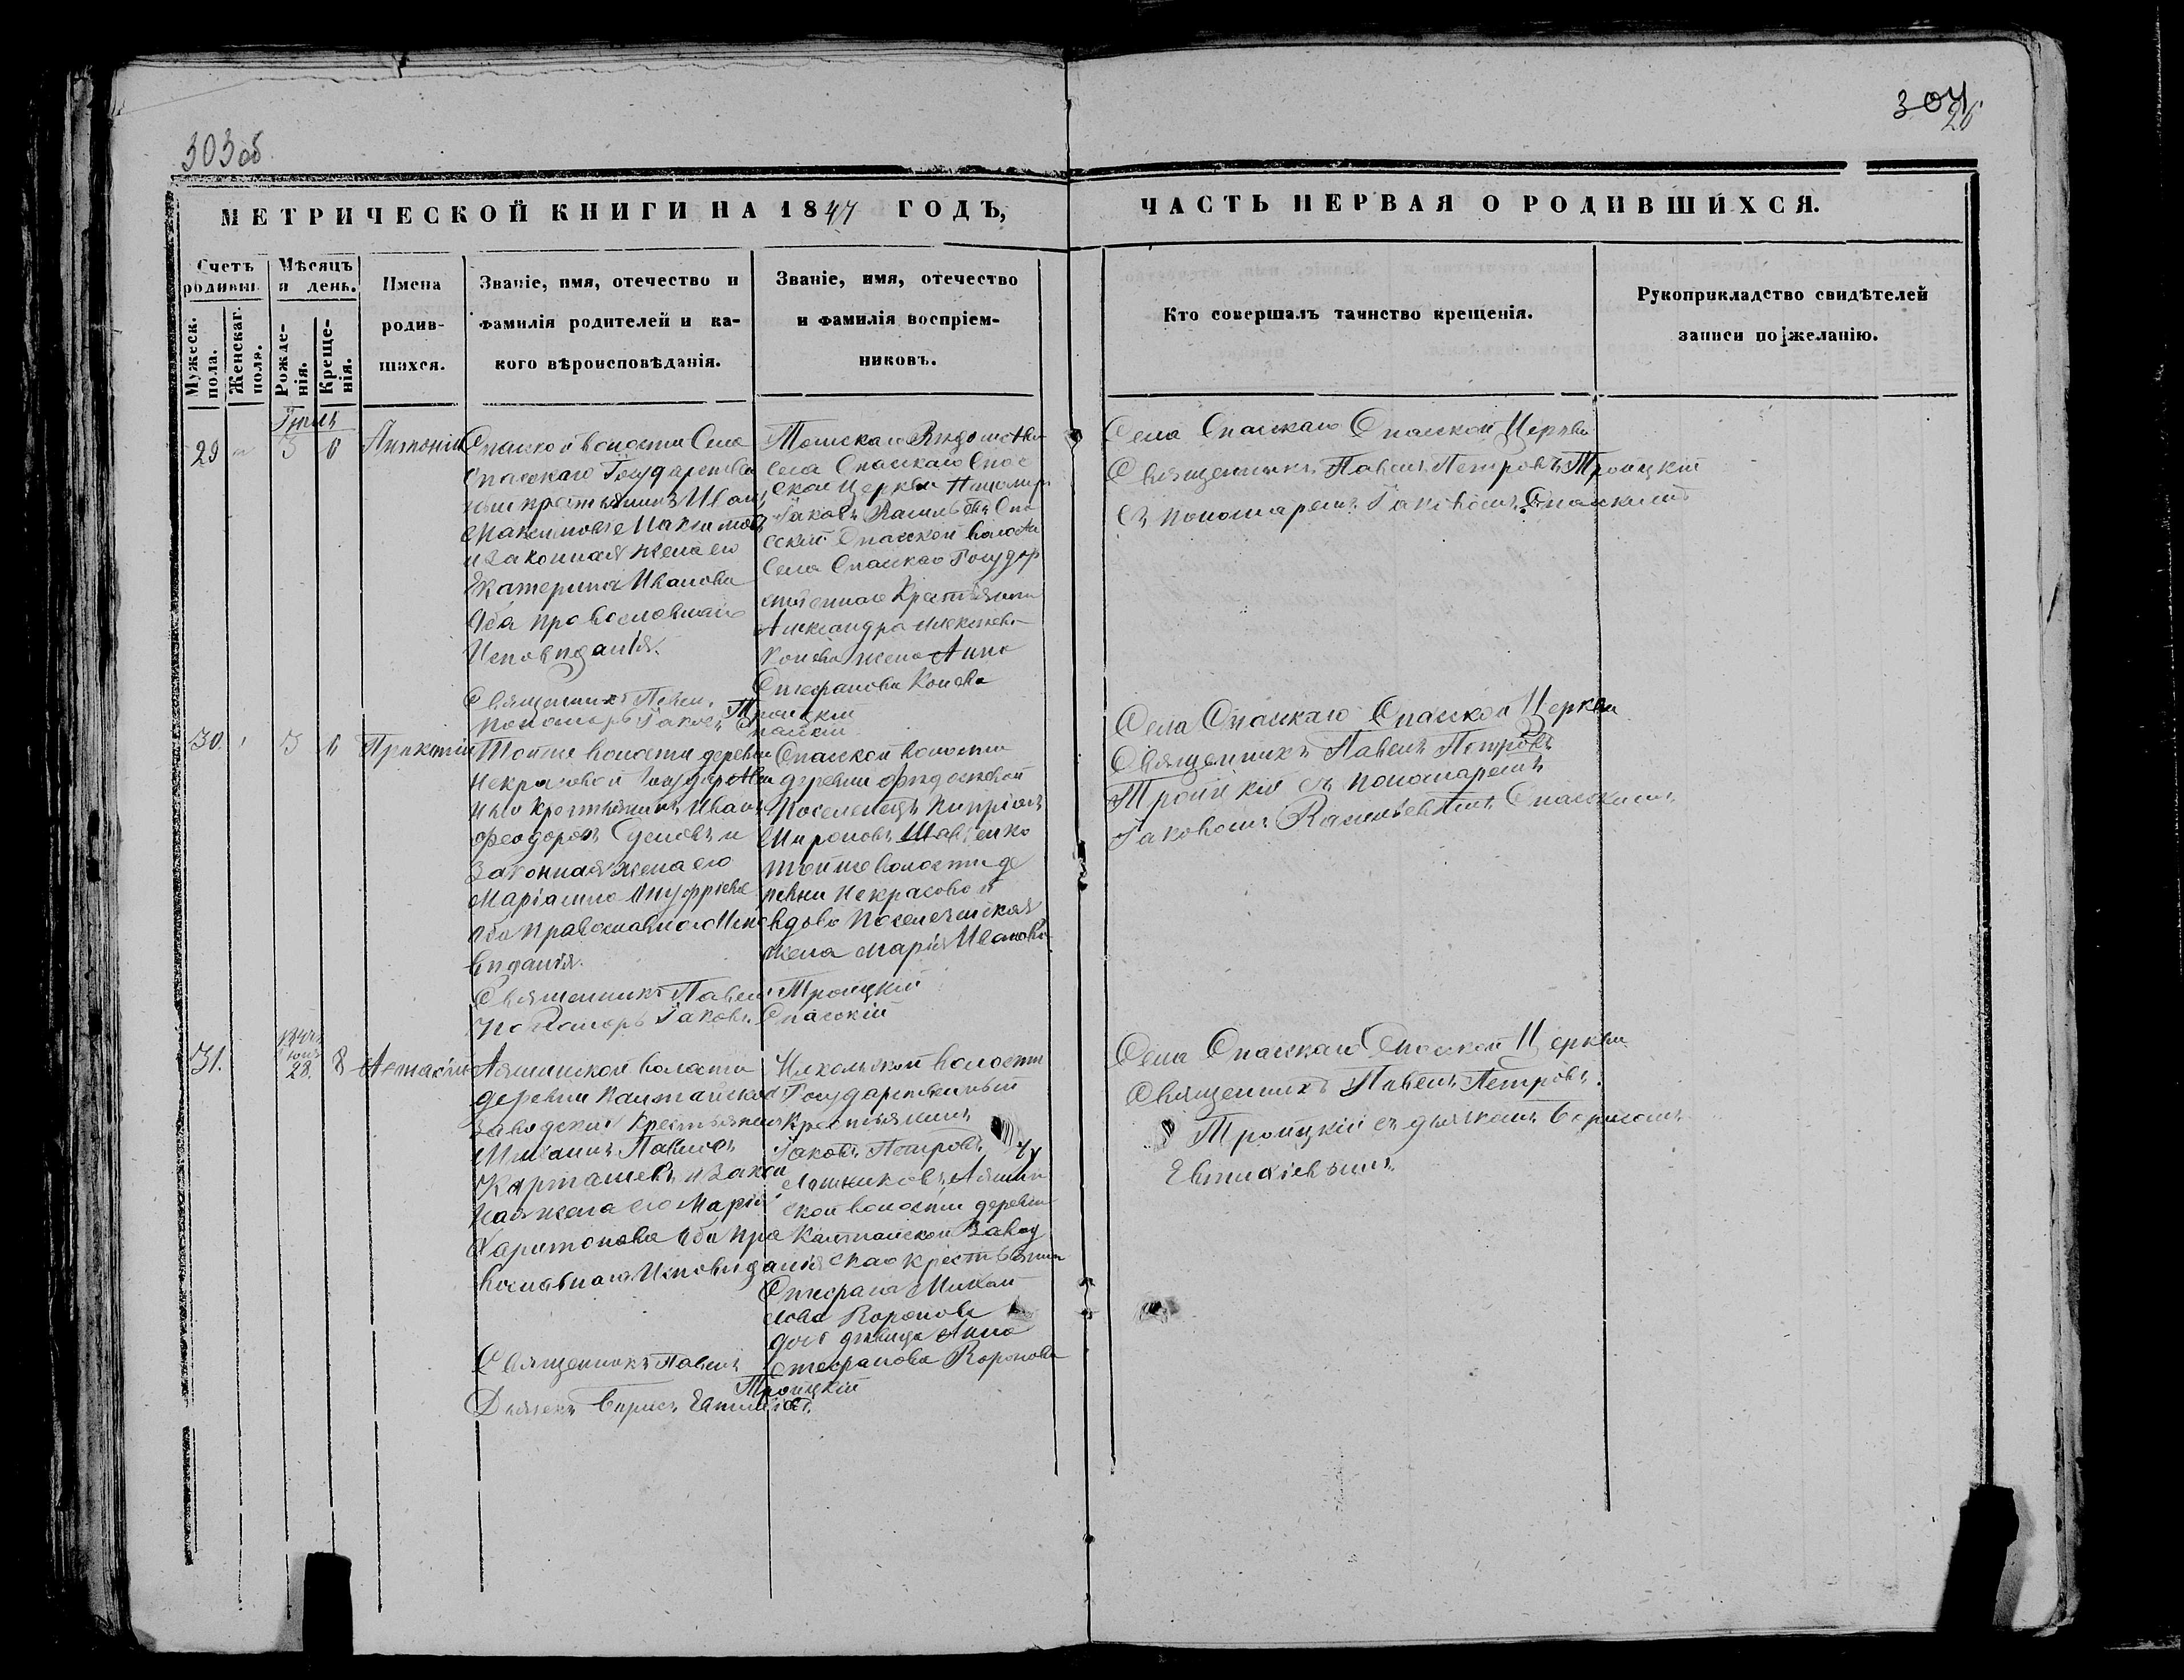 303об
304
26
МЕТРИЧЕСКОЙ КНИГИ НА 1847 ГОДЪ,
ЧАСТЬ ПЕРВАЯ О РОДИВШИХСЯ.
Счетъ родивш.
Мужеск. пола.
Женскаг. пола.
Мѣсяцъ и день.
Рожде-
нія.
Креще-
нія.
Имена
родив-
шихся.
Званіе, имя, отечество и
фамилія родителей и ка-
кого вѣроисповѣданія.
Званіе, имя, отечество
и фамилія воспріем-
никовъ.
Кто совершалъ таинство крещенія.
Рукоприкладство свидѣтелей
записи по желанію.
29
6
Антоній
Спаской волости Села
Спаскаго Государствен
ный крестьянинъ Иванъ
Максимовъ Максимовъ
и законная жена его
Екатерина Иванова
Оба православнаго
Исповѣданія.
Священникъ Павелъ Троицкій
Пономарь Іаковъ Спаскій
Томскаго Вѣдомства
Села Спаскаго Спас
ской Церкви Пономарь
Іаковъ Васильевъ Спа
ской волости
Села Спаскаго Государ
ственнаго Крестьянина
Александра Алексѣева
Конева жена Анна
Стефанова Конева
Села Спаскаго Спаской Церкви
Священникъ Павелъ Петровъ Троицкій
Съ пономаремъ Іаковомъ Спаскимъ
30.
3
6
Тойже волости деревни
Некрасовой Государствен
Крестьянинъ Иванъ
Феодоровъ
Законная жена его
Маріамна Ануфріева
Оба православнаго Испо
вѣданія.
Священникъ Павелъ Троицкій
Пономарь Іаковъ Спаскій
Спаской волости
деревни Федосѣевой
Поселенецъ Кипріанъ
Мироновъ Шавченко
тойже волости де
ревни Некрасовой
вдова Поселенческая
жена Марія Иванова
Села Спаскаго Спаской Церкви
Священникъ Павелъ Петровъ
Троицкій съ пономаремъ
Іаковомъ Васильевымъ Спаскимъ
31.
28.
8
волости
деревни Калтайской
Заводскій Крестьянинъ
Павловъ
Карташевъ и закон
ная жена его Марія
Харитонова Оба пра
вославнаго Исповѣданія
Священникъ Павелъ Троицкій
Дьячекъ Борисъ
волости
Государственный
Крестьянинъ
Іаковъ Петровъ
ской волости деревни
Калтайской Завод
скаго крестьянина
Стефана Михай
лова Воронова
дочь дѣвица Анна
Стефанова Воронова
Села Спаскаго Спаской Церкви
Священникъ Павелъ Петровъ
Троицкій съ дьячкомъ Борисомъ